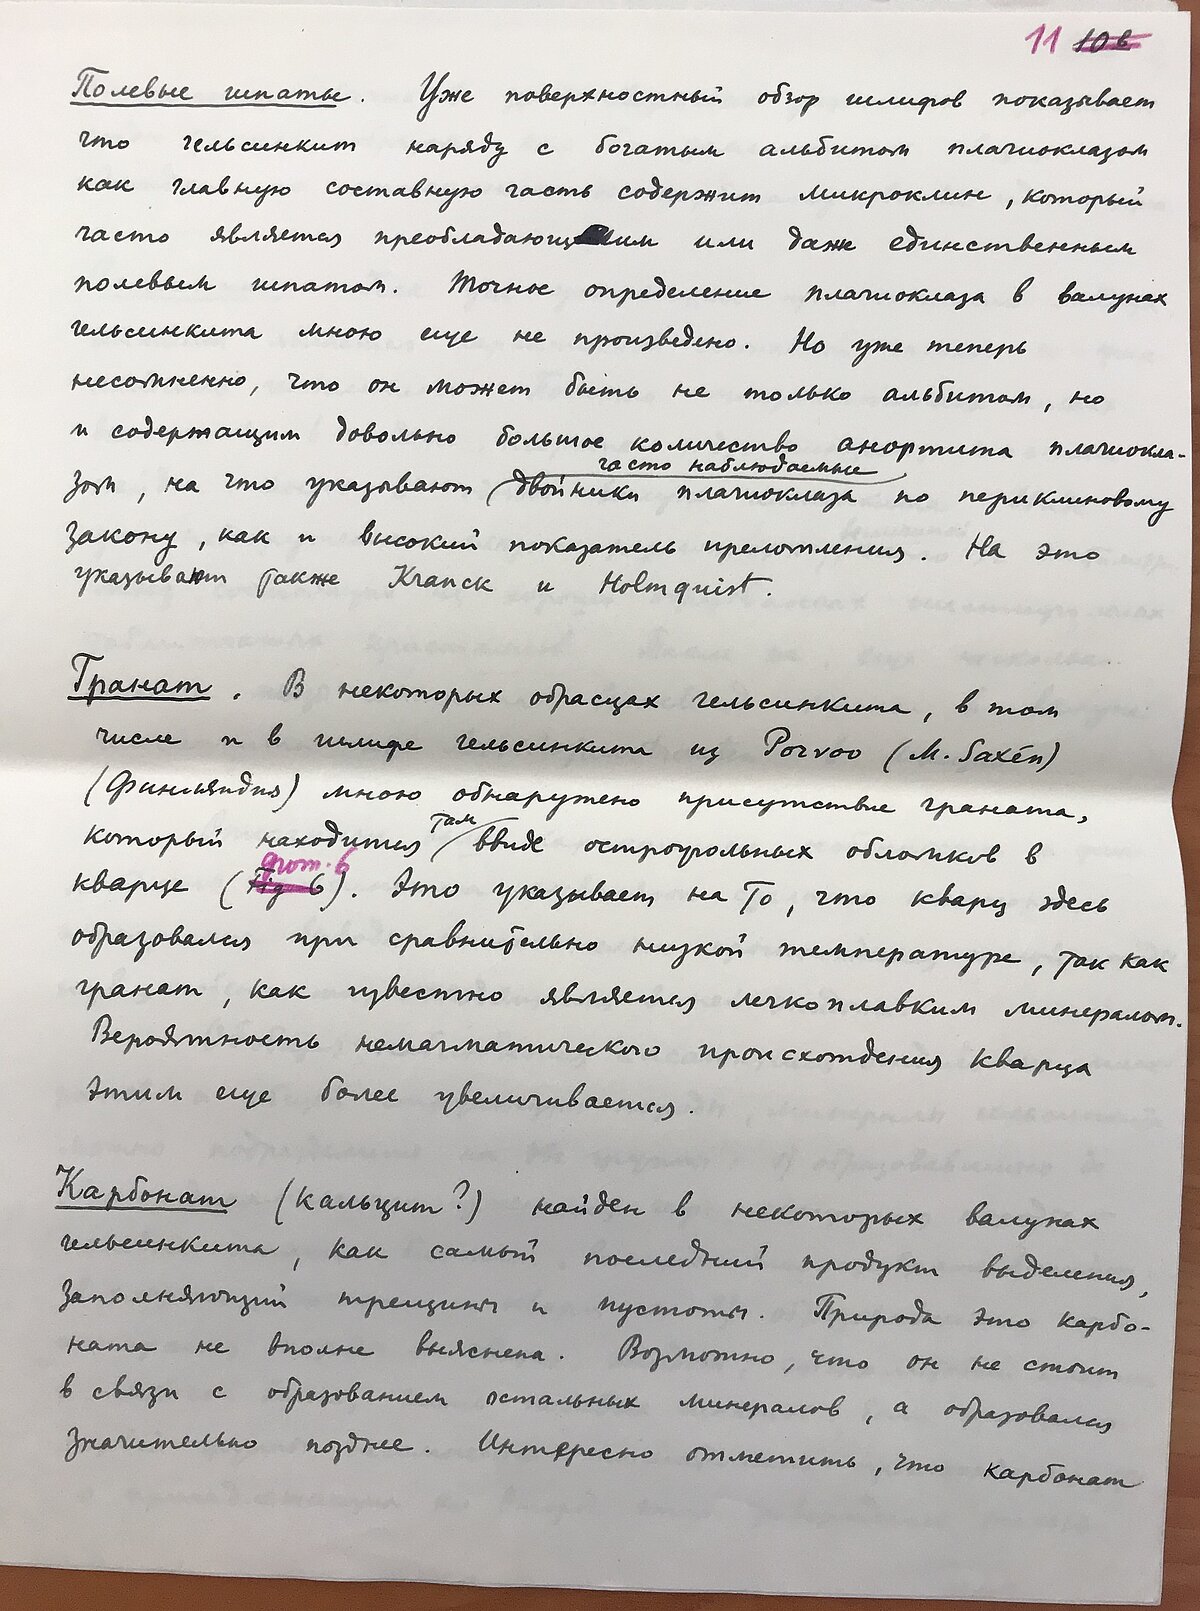 11 10в
Полевые шпаты. Уже поверхностный обзор шлифов показывает
что гельсинкит наряду с богатым альбитом плагиоклазом
как главную составную часть содержит микроклин, который
часто является преобладающим или даже единственным
полевым шпатом. Точное определение плагиоклаза в валунах
гельсинкита мною еще не произведено. Но уже теперь
несомненно, что он может быть не только альбитом, но
и содержащим довольно большое количество анортита плагиокла-
часто наблюдаемые
зом, на что указывают двойники плагиоклаза по периклиновому
закону, как и высокий показатель преломления. На это
указывают также Kranck и Holmquist.
Гранат. В некоторых образцах гельсинкита, в том
числе и в шлифе гельсинкита из Porvoo (M. Saxén)
(Финляндия) мною обнаружено присутствие граната,
который находится там ввиде остроугольных обломков в
фот. 6
кварце (Fig 6). Это указывает на то, что кварц здесь
образовался при сравнительно низкой температуре, так как
гранат, как известно является легкоплавким минералом.
Вероятность немагматического происхождения кварца
этим еще более увеличивается.
Карбонат (кальцит?) найден в некоторых валунах
гельсинкита, как самый последний продукт выделения,
заполняющий трещины и пустоты. Природа это карбо-
ната не вполне выяснена. Возможно, что он не стоит
в связи с образованием остальных минералов, а образовался
значительно позднее. Интересно отметить, что карбонат